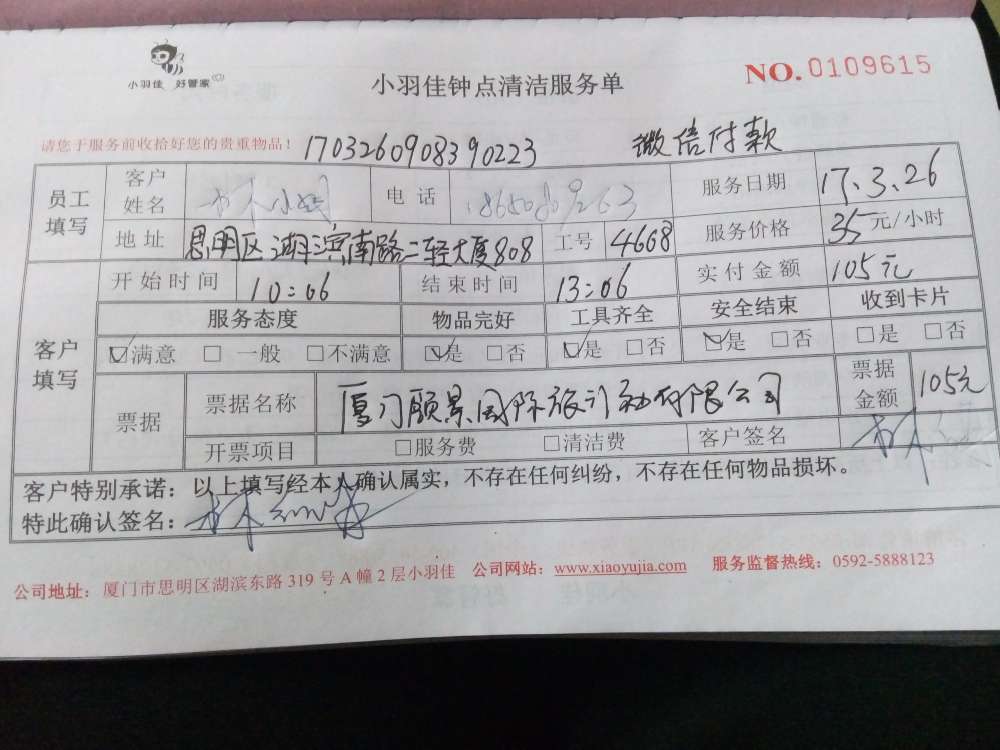 小羽佳 好管家
小羽佳钟点清洁服务单
NO.0109615
请您于服务前收拾好您的贵重物品！ 1703260908390223 微信付款
员工填写 客户姓名 林小 电话 服务日期 17.3.26
地址 思明区湖滨南路二轻大厦808 工号 4668 服务价格 35元/小时
客户填写 开始时间 10:06 结束时间 13:06 实付金额 105元
服务态度 物品完好 工具齐全 安全结束 收到卡片
☑满意 □一般 □不满意 ☑是 □否 ☑是 □否 ☑是 □否 □是 □否
票据 票据名称 厦门颐景国际旅行社有限公司 票据金额 105元
开票项目 □服务费 □清洁费 客户签名 林
客户特别承诺：以上填写经本人确认属实，不存在任何纠纷，不存在任何物品损坏。
特此确认签名：林
公司地址：厦门市思明区湖滨东路 319 号 A 幢 2 层小羽佳 公司网站：www.xiaoyujia.com 服务监督热线：0592-5888123